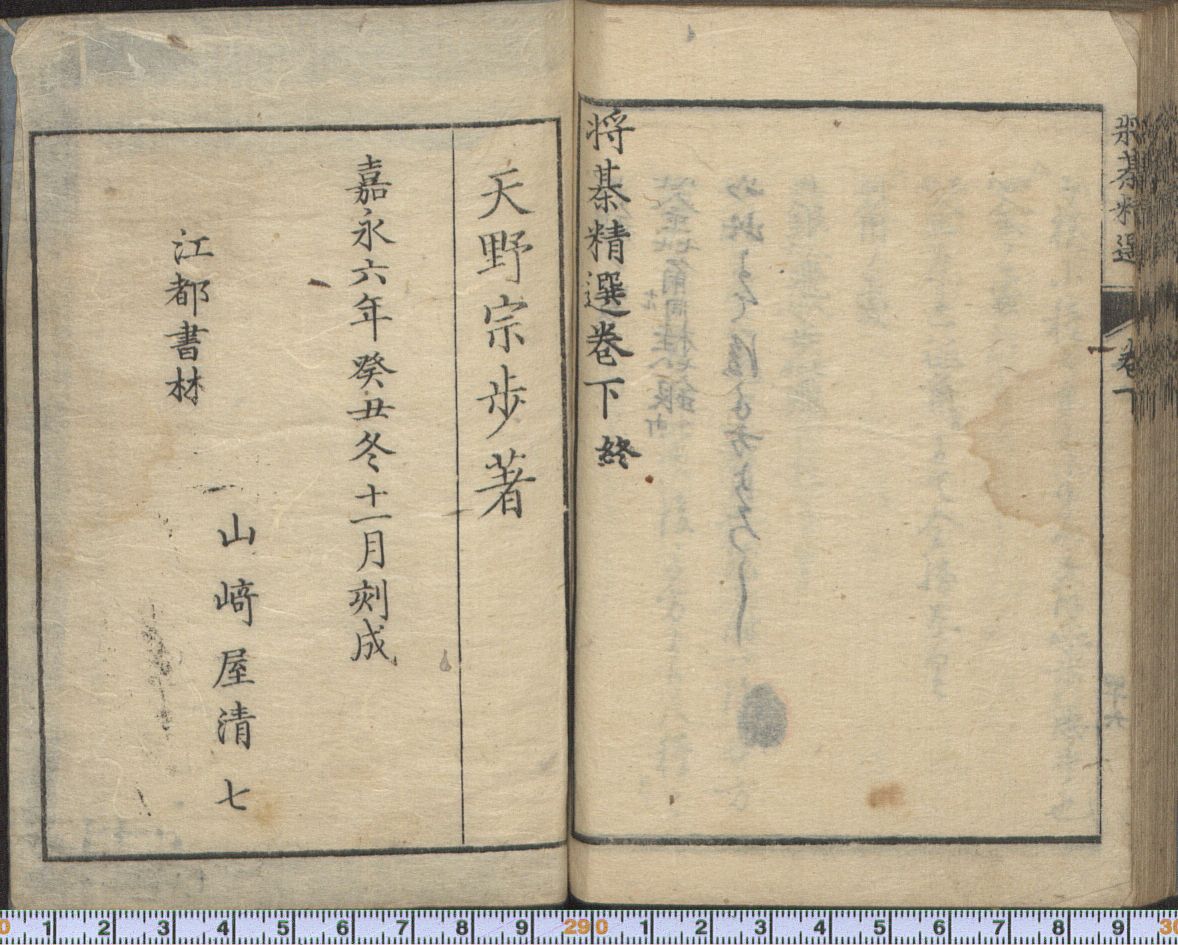 将棊精選
巻下
将棊精選巻下 終
天野宗歩著
嘉永六年癸丑冬十一月刻成
江都書林
山﨑屋清七
0 1 2 3 4 5 6 7 8 9 29 0 1 2 3 4 5 6 7 8 9 30